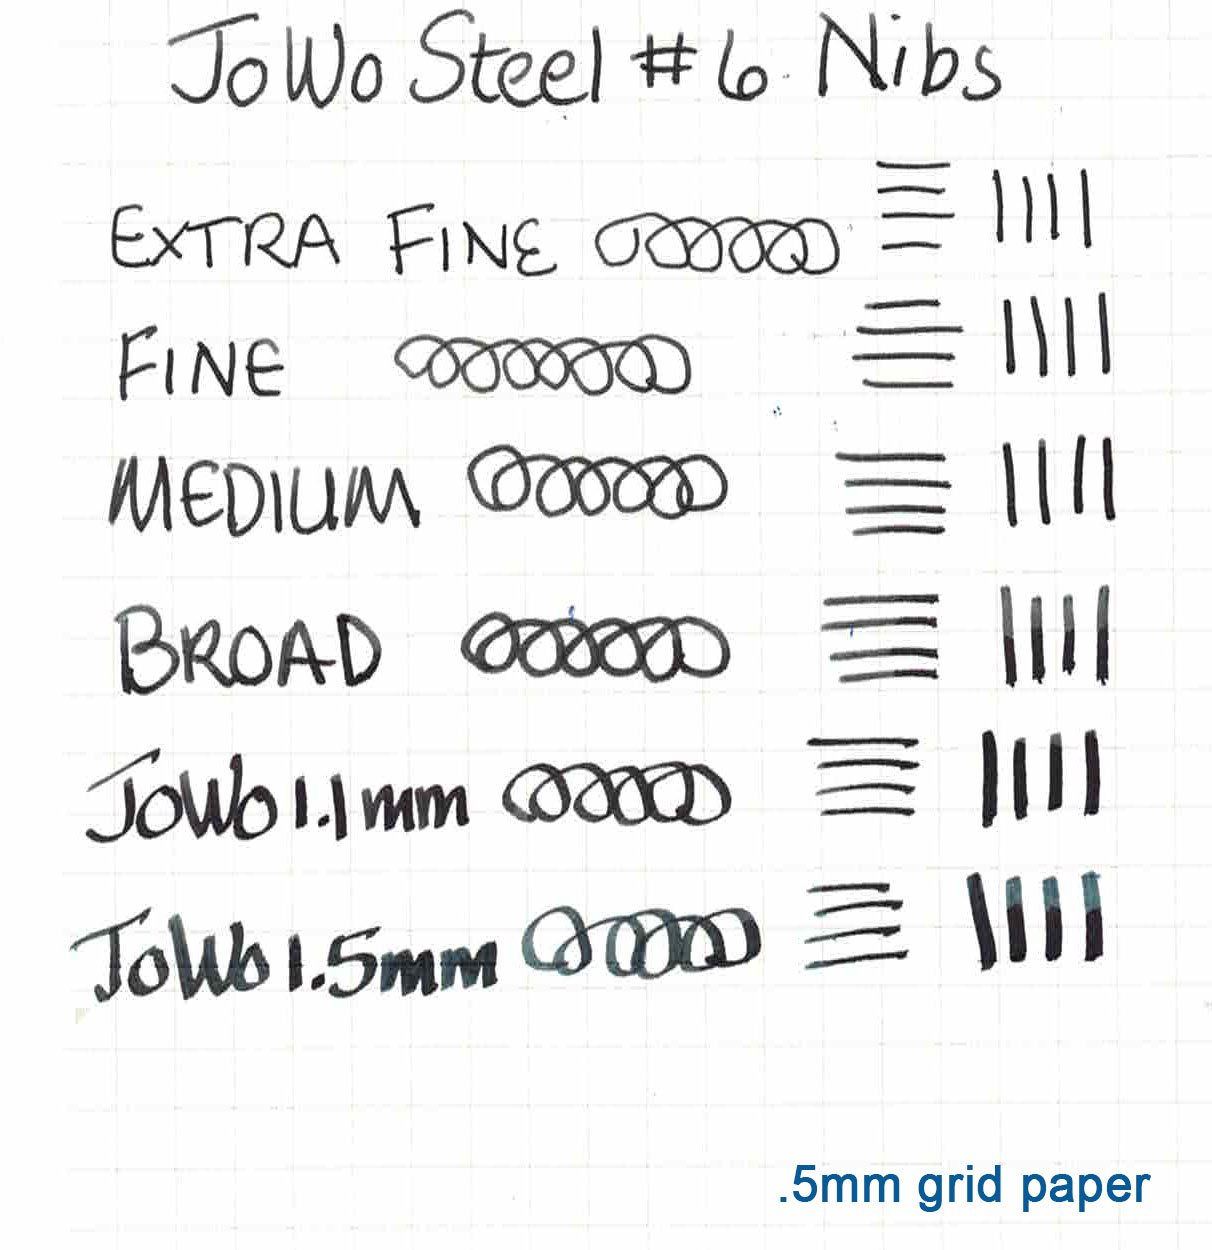 JoWo Steel #6 Nibs
EXTRA FINE
FINE
MEDIUM
BROAD
JoWo 1.1mm
JoWo 1.5mm
.5mm grid paper